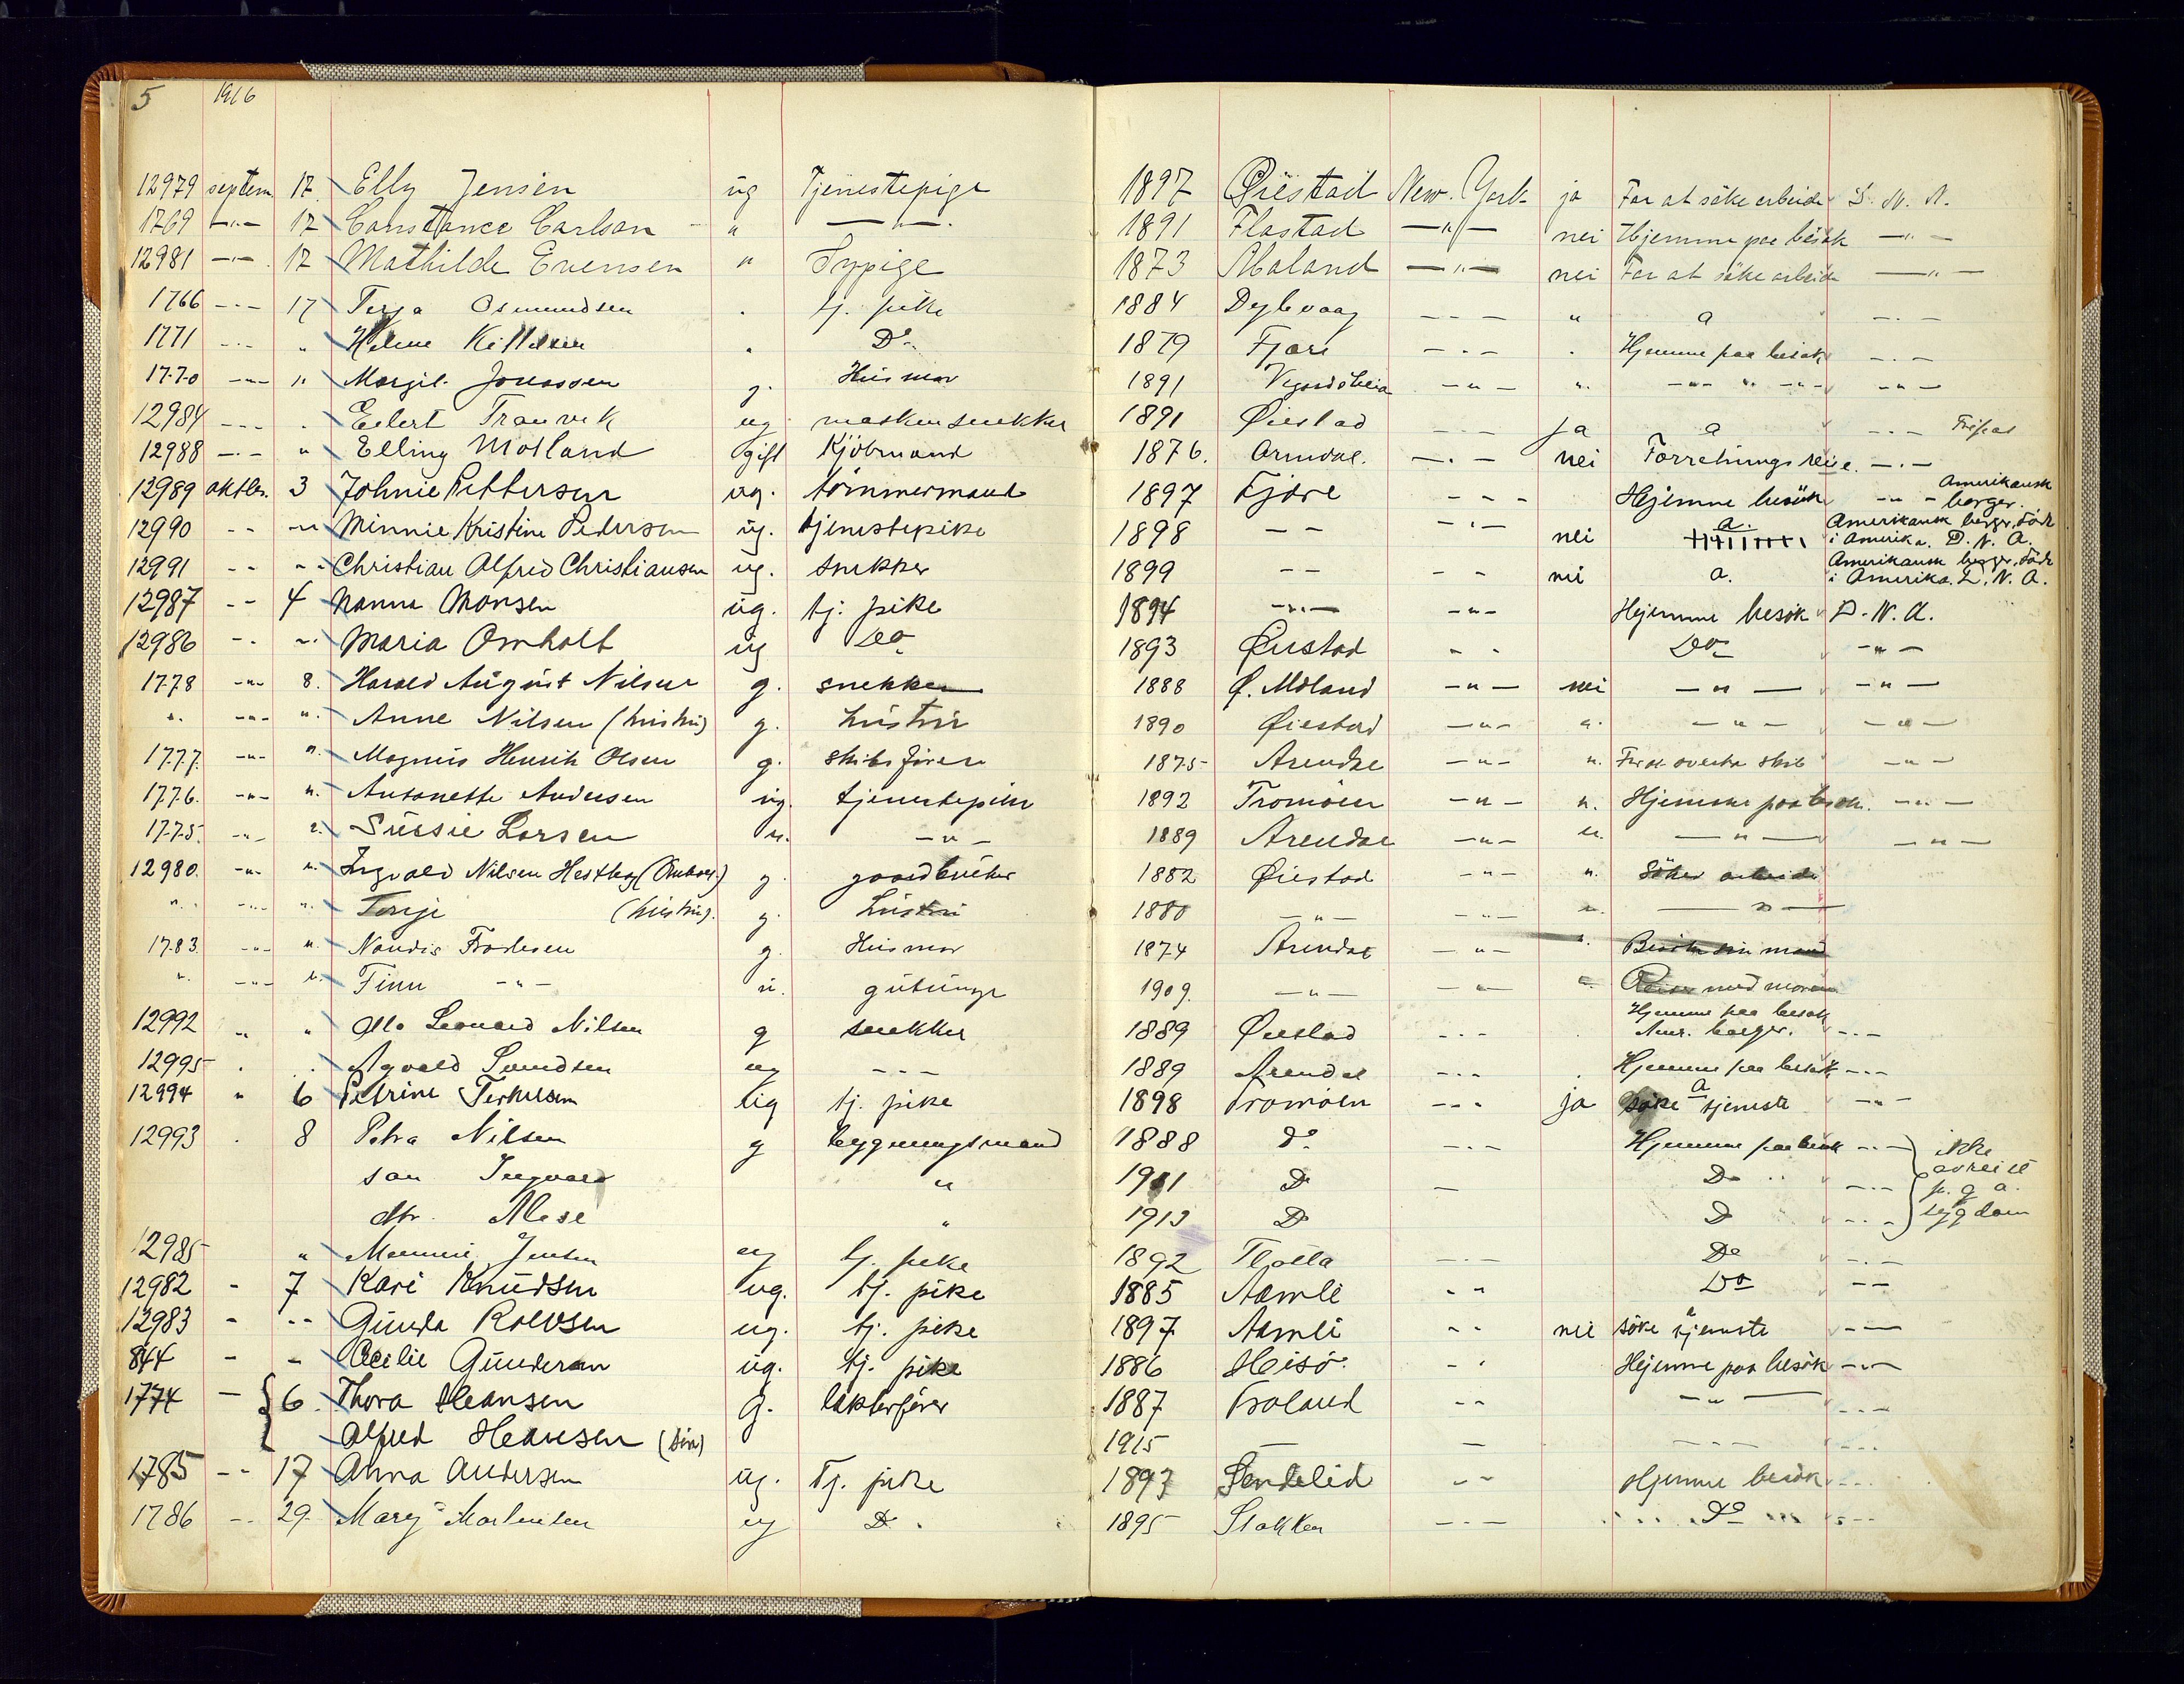 5 1916
12979 septem. 17. Elly Jensen ug Tjenestepige 1897 Øiestad New. York ja For at söke arbeide D. N. A.
1769 —"— 17 Constance Carlson " —"—. 1891 Flostad —"— nei Hjemme paa besök —"—
12981 —"— 17 Mathilde Evensen " Sypige 1873 Moland —"— nei For at söke arbeide —"—
1766 —"— 17 Terja Osmundsen . tj. pike 1884 Dybvaag —"— " a —"—
1771 —"— " Helene Kittelsen . Do 1879 Fjære —"— . Hjemme paa besök —"—
1770 —"— " Margit Jonassen g. Husmor 1891 Vegardsheia —"— ". —"— " —"— —"—
12984 —"— . Eilert Tranvik ug maskinsnekker 1891 Øiestad —"— Ja a —"— Fripas
12988 —"— " Elling Motland gift Kjöbmand 1876. Arendal. —"— nei Forretningsreise. —"—
12989 oktbr. 3 Johnie Pettersen ug. tömmermand 1897 Fjære —"— Hjemme besök —"— Amerikansk borger.
12990 —"— —"— Minnie Kristine Pedersen ug. tjenestepike 1898 —"— —"— nei a. Amerikansk borger, född i Amerika. D. N. A.
12991 —"— —"— Christian Alfred Christiansen ug. snekker 1899 —"— —"— nei a. Amerikansk borger, född i Amerika. D. N. A.
12987 —"— 4 Nanna Monsen ug. tj. pike 1894 —"— —"— Hjemme besök D. N. A.
12986 —"— —"— Maria Omholt ug Do 1893 Øiestad —"— Do —"—
1778 —"— 8. Harald August Nilsen g. snekker 1888 Ø. Moland —"— nei —"— —"—
". —"— ". Anne Nilsen (hustru) g. hustru 1890 Øiestad —"— ". —"— —"—
1777. —"— ". Magnus Henrik Olsen g. skibsförer 1875 Arendal —"— ". For at overta skib —"—
1776. —"— ". Antonette Andersen ug. tjenestepike 1892 Tromöen —"— ". Hjemme paa besök. —"—
1775. —"— ". Sussie Larsen ". —"— 1889 Arendal —"— ". —"— —"—
12980. —"— ". Ingvald Nilsen g. gaardbruker 1882 Øiestad —"— ". Söker arbeide
". —"— ". Terje (hustru). g. hustru 1880 —"— —"— ". —"—
1783. —"— ". g. Husmor 1874 Arendal —"— ". Besöke sin mand
". —"— ". Finn —"— u. gutunge 1909. —"— —"— ". Reiser med moren
12992 " " Olla Leonard Nilsen g snekker 1889 Øiestad —"— Hjemme paa besök Amr. borger. —"—
12995 . . Agvald Svendsen ug —"— 1889 Arendal —"— . Hjemme paa besök —"—
12994 " 6 Petrine Terkelsen ug tj. pike 1898 Tromöen —"— ja a söke tjeneste —"—
12993 . 8 Petra Nilsen g bygningsmand 1888 Do —"— Hjemme paa besök —"— ikke avreist p. g. a. sygdom
sön Ingvald " 1911 Do — Do —"—
dtr. Alise " 1913 Do Do —"—
12985 " Mammie Jensen ug tj. pike 1892 —"— Do —"—
12982 - 7 Kari Knudsen ug. tj. pike 1885 Aamli —"— Do —"—
12983 - —"— Gunda Rolvsen ug. tj. pike 1897 Aamli —"— nei söke tjeneste —"—
844 - - Cecilie Gundersen ug. tj. pike 1886 Hisö —"— Hjemme paa besök —"—
1774 — 6. Thora Hansen g. lakterförer 1887 Froland —"— —"— —"—
Alfred Hansen (sön) 1915 — — —"— —"—
1785 —"— 17 Anna Andersen ug. Tj. pike 1893 Søndeled —"— Hjemme besök —"—
1786 —"— 29. Mary Martinsen ug Do. 1895 Stokken —"— Do —"—